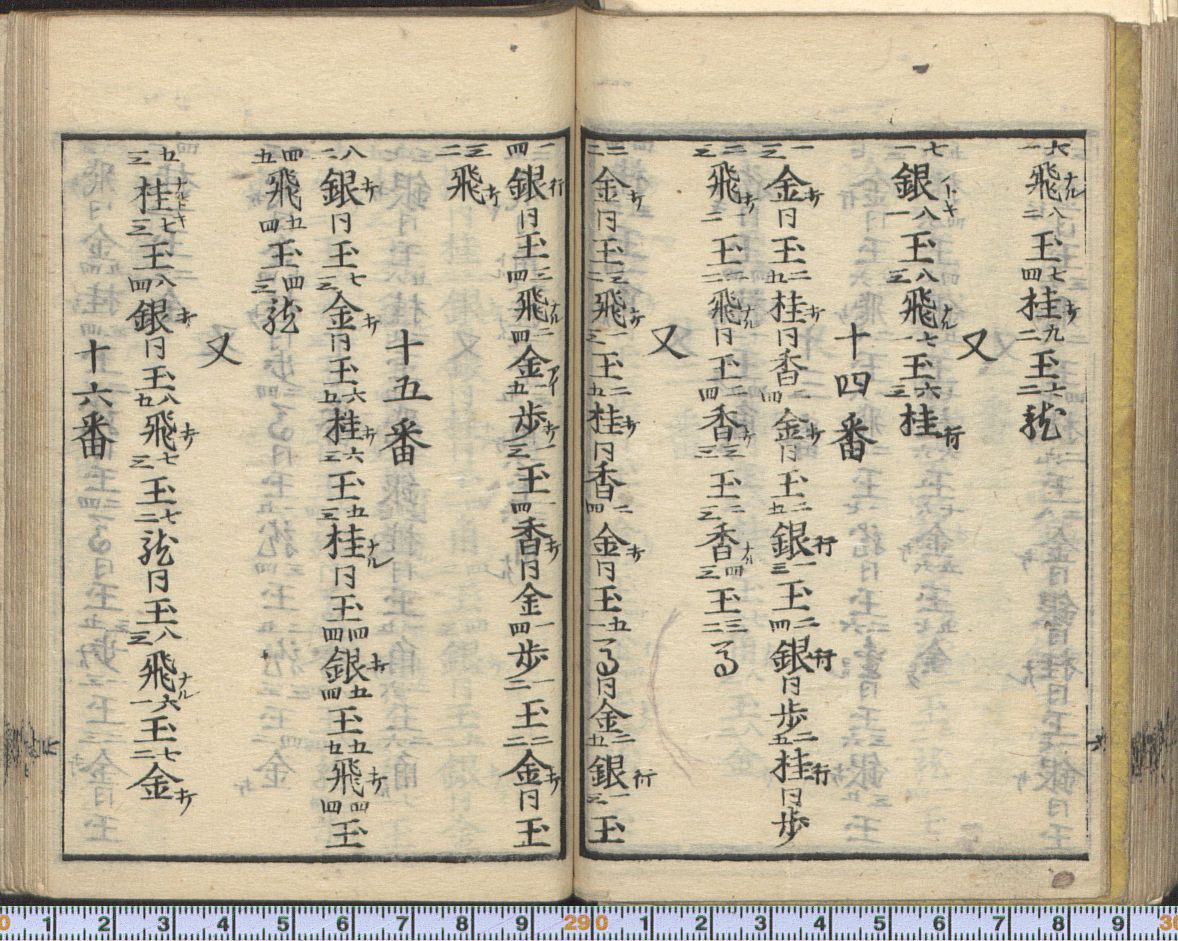 六一飛ナル八二玉七四桂打九二玉六二龍
又
七一銀八一玉八三飛ナル七一玉六三桂行
十四番
一三金打同玉二五桂打同香一四金打同玉二五銀行一三玉二四銀行同歩二五桂行同歩
二三飛打一二玉二二飛ナル同玉二四香打三三玉二三香ナル四三玉三二る
又
二二金打同玉三二飛ナル一三玉二五桂打同香一四金打同玉五一る同金二五銀行一三玉
二四銀行同玉三四飛ナル二四金アイ一五歩打一三玉一四香打同金一四歩一二玉二二金打同玉
三二飛打
十五番
八二銀打同玉七三金打同玉六五桂打六三玉五三桂ナル同玉四四銀打五四玉五九飛打四四玉
四五飛打五四玉四三龍
又
五三桂七三玉八四銀打同玉八九飛打七三玉七二龍同玉八三飛ナル六一玉七二金打
十六番